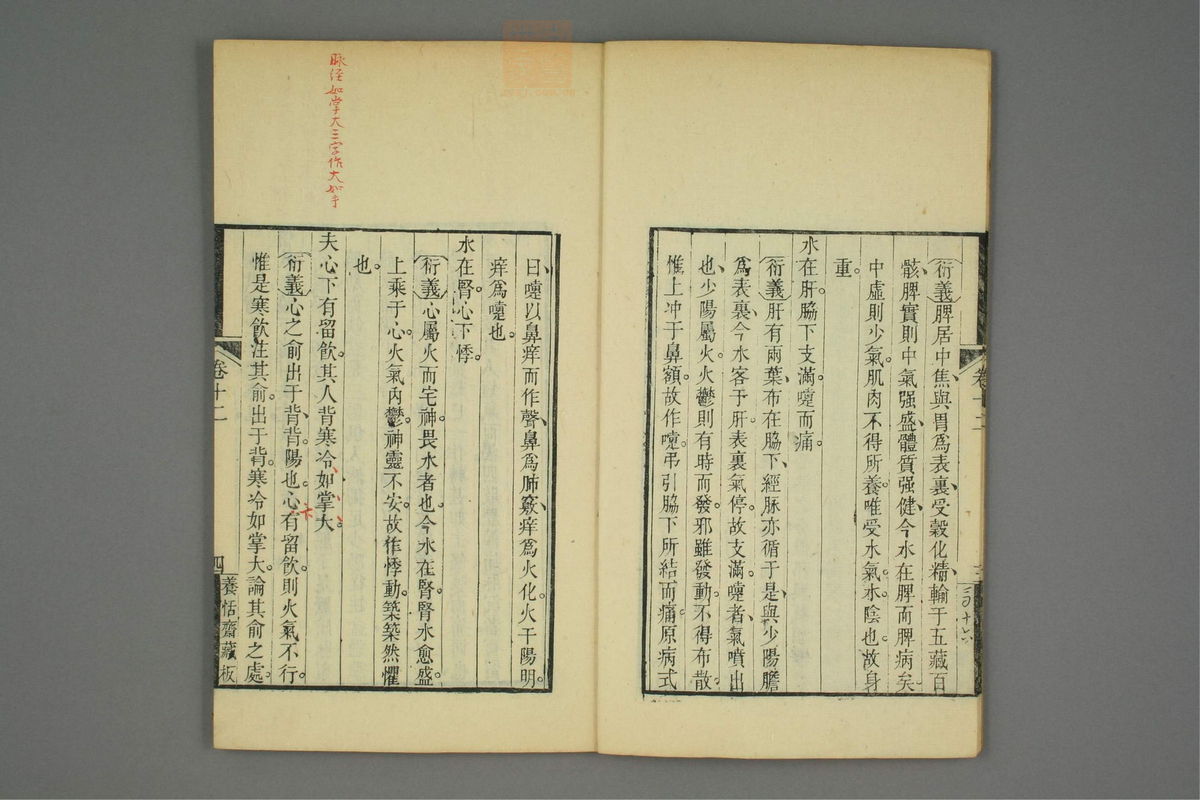 衍義脾居中焦與胃爲表裏受穀化精輸于五藏百
骸脾實則中氣强盛體質强健今水在脾而脾病矣
中虛則少氣肌肉不得所養唯受水氣水陰也故身
重
水在肝脇下支滿嚏而痛
衍義肝有兩葉布在脇下經脉亦循于是與少陽膽
爲表裏今水客于肝表裏氣停故支滿嚏者氣噴出
也少陽屬火火鬱則有時而發邪雖發動不得布散
惟上冲于鼻額故作嚏吊引脇下所結而痛原病式
曰嚏以鼻痒而作聲鼻爲肺竅痒爲火化火干陽明
痒爲嚏也
水在腎心下悸
衍義心屬火而宅神畏水者也今水在腎腎水愈盛
上乘于心火氣內鬱神靈不安故作悸動築築然懼
也
脉经如掌大三字作大如手
夫心下有留飲其人背寒冷如掌大
衍義心之俞出于背背陽也心有留飲則火氣不行
惟是寒飲注其俞出于背寒冷如掌大論其俞之處
卷十二
四
養恬齋藏板